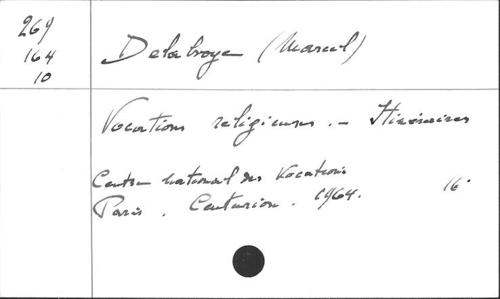 264
164
10
Delabroye (Marcel)
Vocations religieuses. - Itinéraires
Centre national des Vocations
Paris. Centurion. 1964. 16°